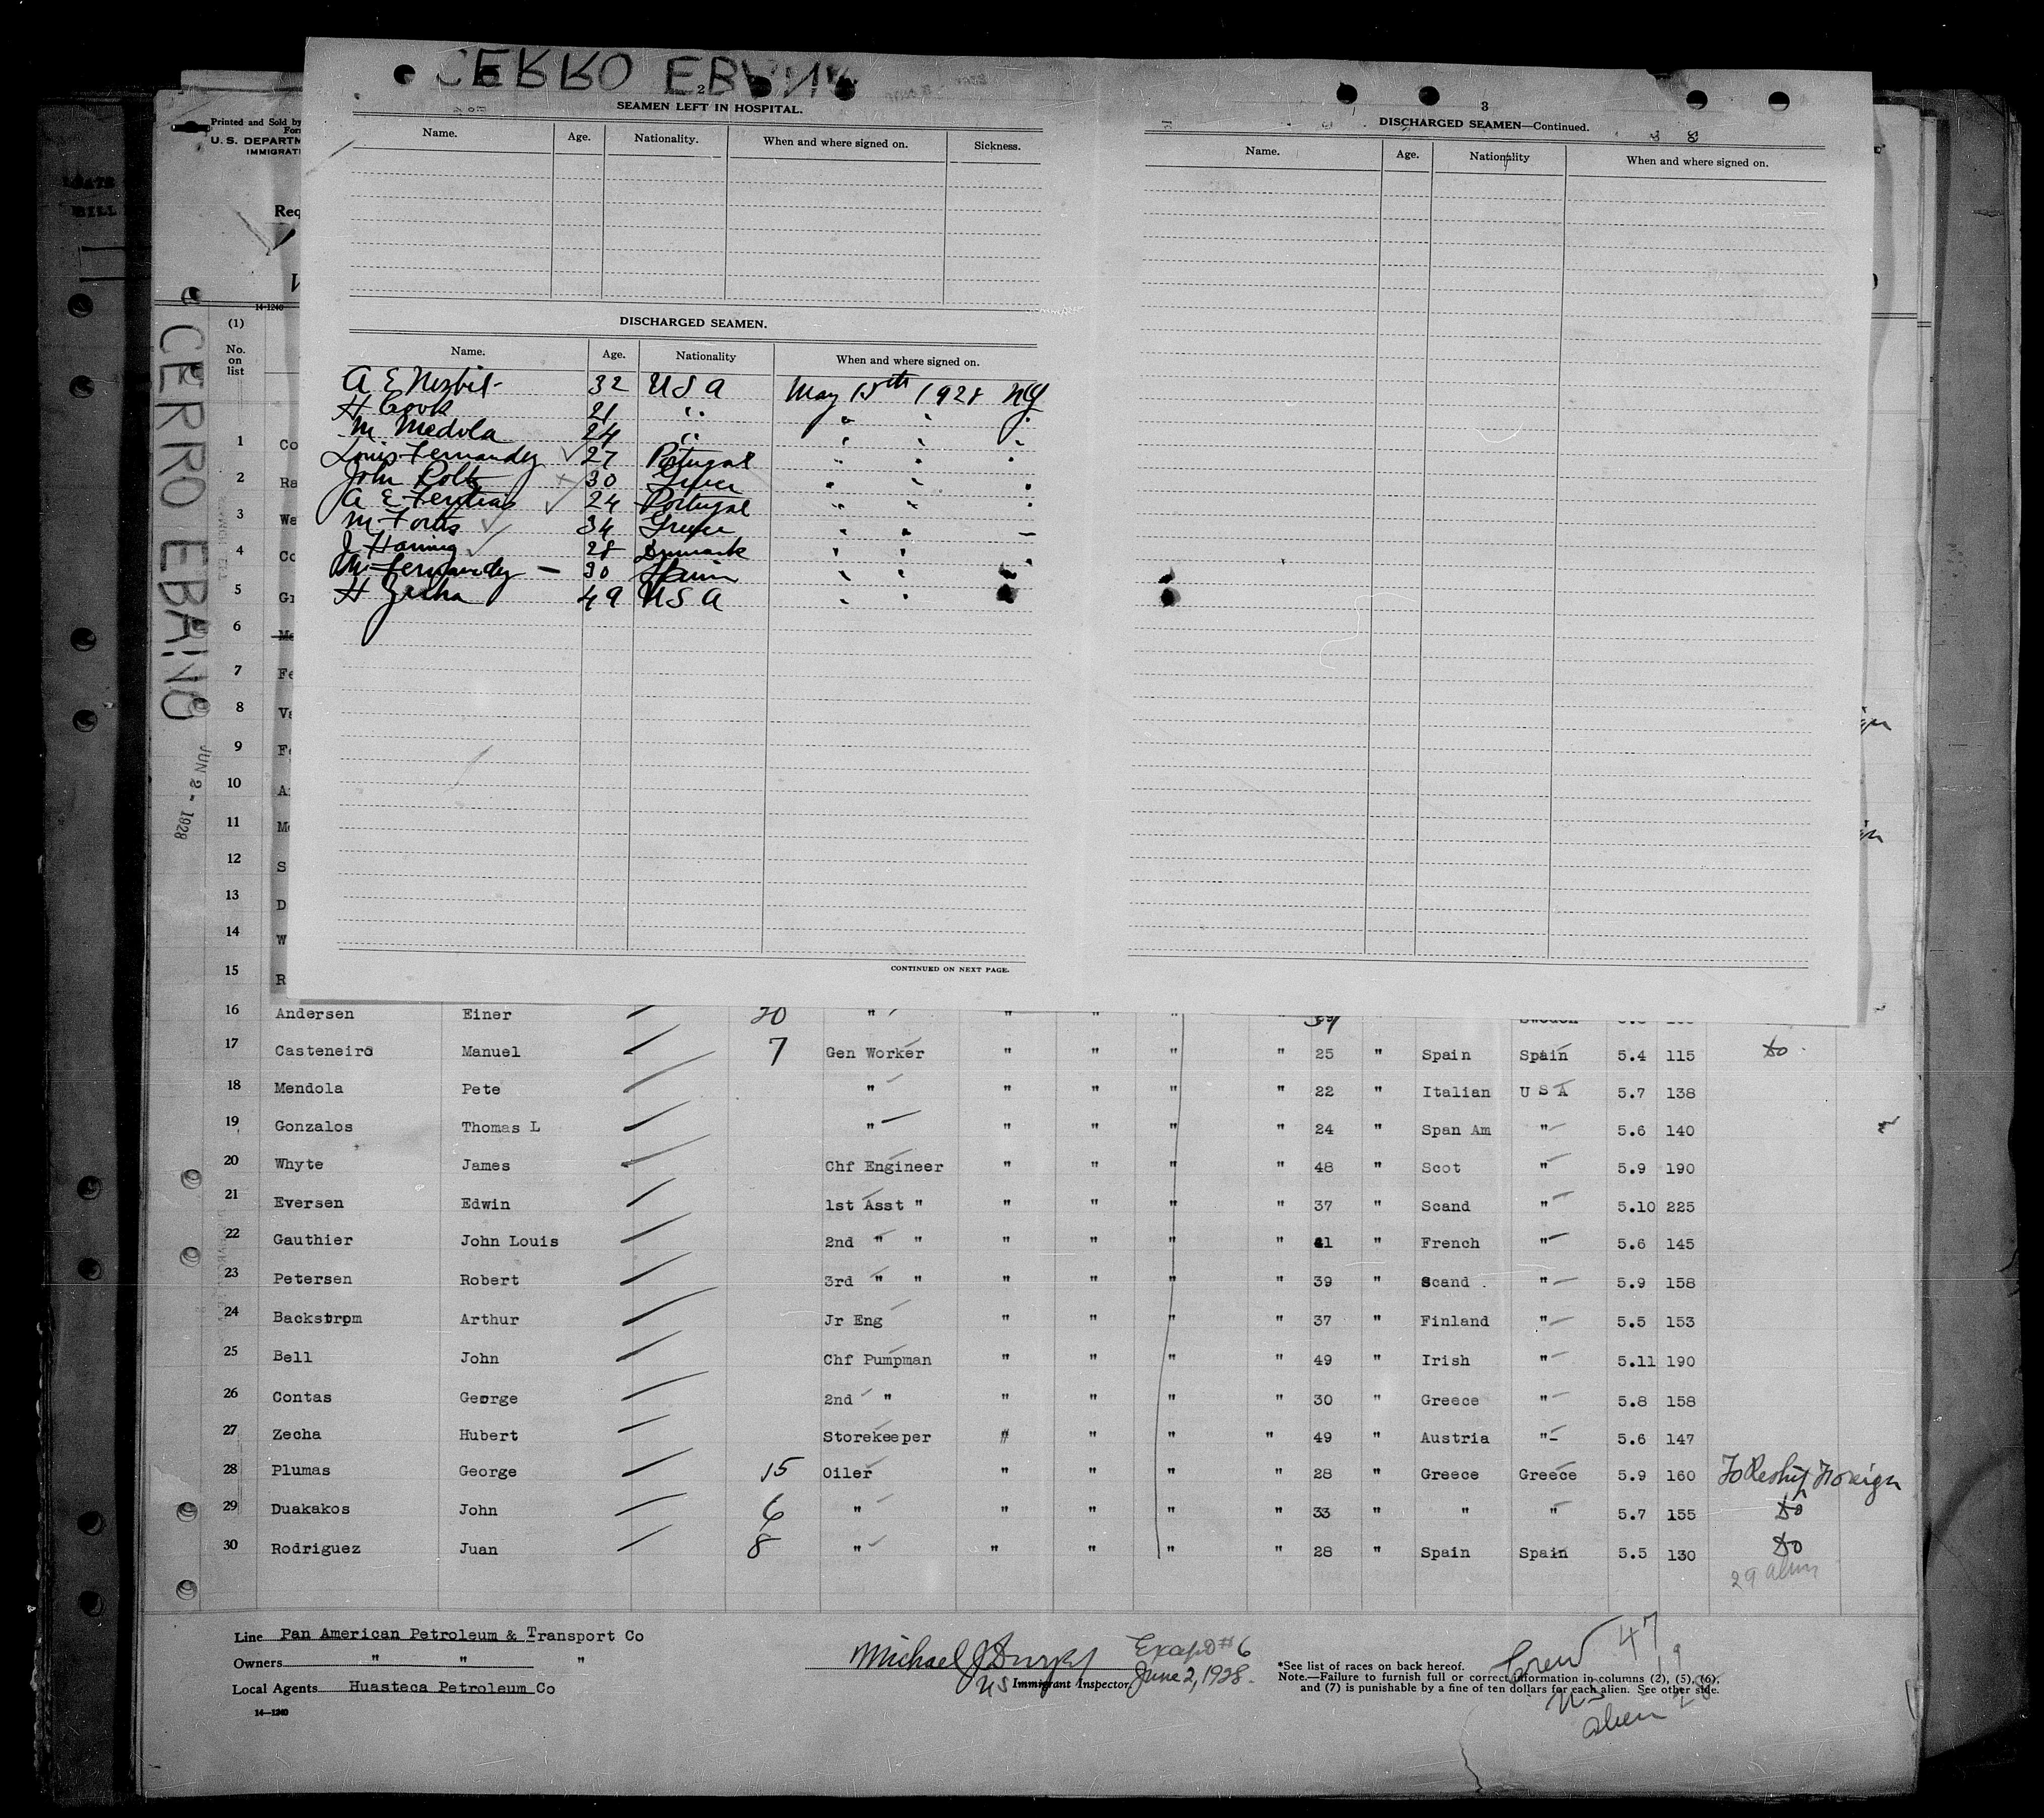 CERRO EBANO
2
SEAMEN LEFT IN HOSPITAL.
Name. Age. Nationality. When and where signed on. Sickness.
DISCHARGED SEAMEN.
Name. Age. Nationality When and where signed on.
A E Nesbit 32 USA May 15th 1928 NY
H Cook 21 " " " "
M Medola 24 " " " "
Louis Fernandez 27 Portugal " " "
John 30 Greece " " "
A E 24 Portugal " " "
M Fotis 34 Greece " " "
J 28 Denmark " " "
M Fernandez 30 Spain " " "
H Zecha 49 USA " "
CONTINUED ON NEXT PAGE.
3
DISCHARGED SEAMEN—Continued.
Name. Age. Nationality When and where signed on.
Printed and Sold by
U. S. DEPARTM
IMMIGRATI
Req
14-1240
(1)
No. on list
CERRO EBANO
JUN 2 - 1928
1 Co
2 Ra
3 Wa
4 Co
5 Gr
6 Me
7 Fe
8 Va
9 Fe
10 A
11 Me
12 S
13 D
14 W
15 R
16 Andersen Einer 20 " " " " "
17 Casteneiro Manuel 7 Gen Worker " " " " 25 " Spain Spain 5.4 115 do
18 Mendola Pete " " " " " 22 " Italian U S A 5.7 138
19 Gonzalos Thomas L " " " " " 24 " Span Am " 5.6 140
20 Whyte James Chf Engineer " " " " 48 " Scot " 5.9 190
21 Eversen Edwin 1st Asst " " " " " 37 " Scand " 5.10 225
22 Gauthier John Louis 2nd " " " " " " 41 " French " 5.6 145
23 Petersen Robert 3rd " " " " " " 39 " Scand " 5.9 158
24 Backstrpm Arthur Jr Eng " " " " 37 " Finland " 5.5 153
25 Bell John Chf Pumpman " " " " 49 " Irish " 5.11 190
26 Contas George 2nd " " " " " 30 " Greece " 5.8 158
27 Zecha Hubert Storekeeper " " " " 49 " Austria " 5.6 147
28 Plumas George 15 Oiler " " " " 28 " Greece Greece 5.9 160 To Reship Foreign
29 Duakakos John 6 " " " " " 33 " " " 5.7 155 do
30 Rodriguez Juan 8 " " " " " 28 " Spain Spain 5.5 130 do
29 alien
Line Pan American Petroleum & Transport Co
Owners " " "
Local Agents Huasteca Petroleum Co
14-1240
Michael J
US Immigrant Inspector June 2, 1928.
*See list of races on back hereof.
Note.—Failure to furnish full or correct information in columns (2), (5), (6), and (7) is punishable by a fine of ten dollars for each alien. See other side.
Crew 47
US 19
Alien 28